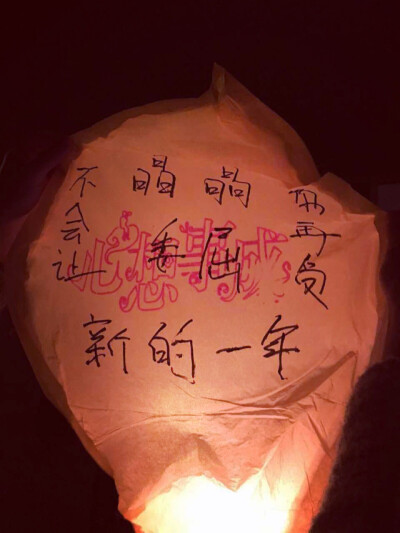 晶晶
不会让
你再受
委屈
心想事成
新的一年